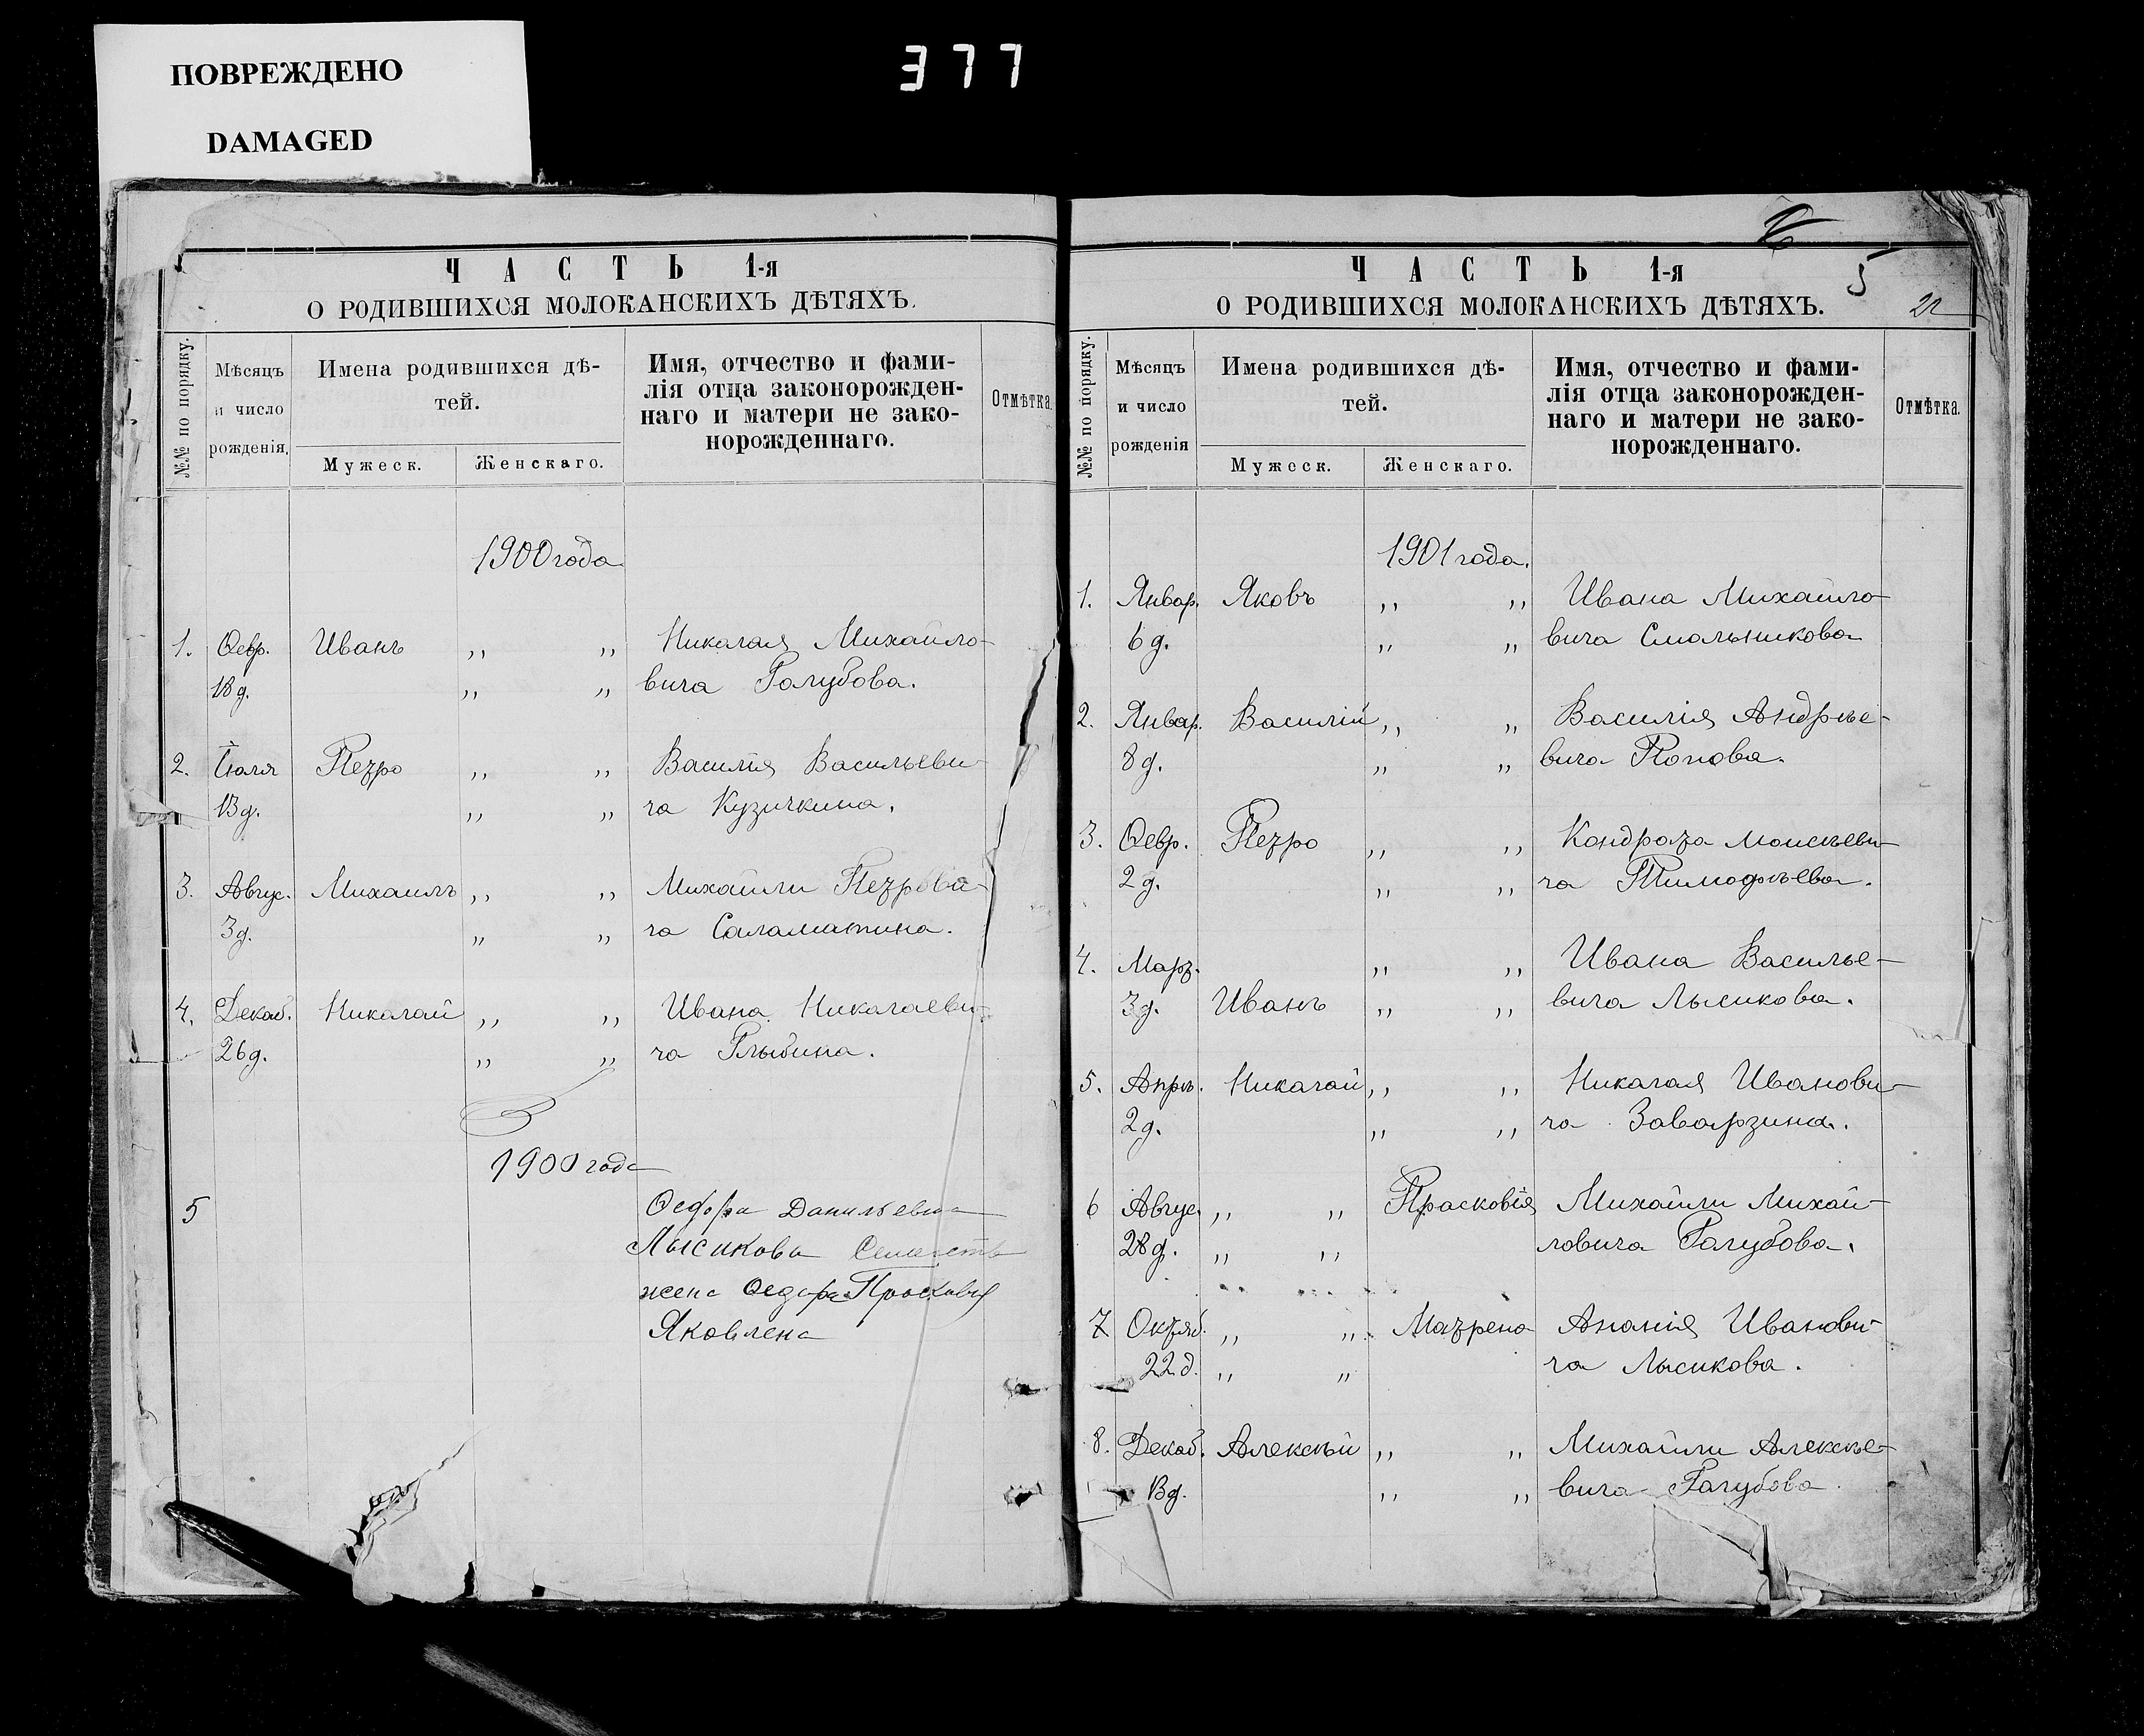 ПОВРЕЖДЕНО
DAMAGED
377
ЧАСТЬ 1-я
О РОДИВШИХСЯ МОЛОКАНСКИХЪ ДѢТЯХЪ.
№№ по порядку.
Мѣсяцъ и число рожденія.
Имена родившихся дѣ-
тей.
Мужеск.
Женскаго.
Имя, отчество и фами-
лія отца законорожден-
наго и матери не зако-
норожденнаго.
Отмѣтка.
1900 года
1. Февр. Иванъ ,, ,, Николая Михайло-
18 д. ,, ,, вича Голубова.
2. Іюля Петро ,, ,, Василія Васильеви-
13 д. ,, ,, ча Кузичкина.
3. Авгус. Михаилъ ,, ,, Михайли Петрови-
3 д. ,, ,, ча Саламатина.
4. Декаб. Николай ,, ,, Ивана Николаеви-
26 д. ,, ,, ча Глыбина.
1900 года
5 Федора Данильевича
Лысикова Семейств
жена Федора Просковья
Яковлена
5
22
ЧАСТЬ 1-я
О РОДИВШИХСЯ МОЛОКАНСКИХЪ ДѢТЯХЪ.
№№ по порядку.
Мѣсяцъ и число рожденія
Имена родившихся дѣ-
тей.
Мужеск.
Женскаго.
Имя, отчество и фами-
лія отца законорожден-
наго и матери не зако-
норожденнаго.
Отмѣтка.
1901 года.
1. Январ. Яковъ ,, ,, Ивана Михайло-
6 д. ,, ,, вича Смольникова
2. Январ. Василій ,, ,, Василія Андрѣе-
8 д. ,, ,, вича Попова.
3. Февр. Петро ,, ,, Кондрата Моисѣеви-
2 д. ,, ,, ча Тимофѣева.
4. Март. ,, ,, Ивана Василье-
3 д. Иванъ ,, ,, вича Лысикова.
5. Апрѣ. Николай ,, ,, Николая Иванови-
2 д. ,, ,, ча Заварзина.
6 Авгус. ,, ,, Прасковія Михайли Михай-
28 д. ,, ,, ловича Голубова.
7 Октяб. ,, ,, Матрена Ананія Иванови-
22 д. ,, ,, ча Лысикова.
8. Декаб. Алексѣй ,, ,, Михайли Алексѣе-
13 д. ,, ,, вича Голубова